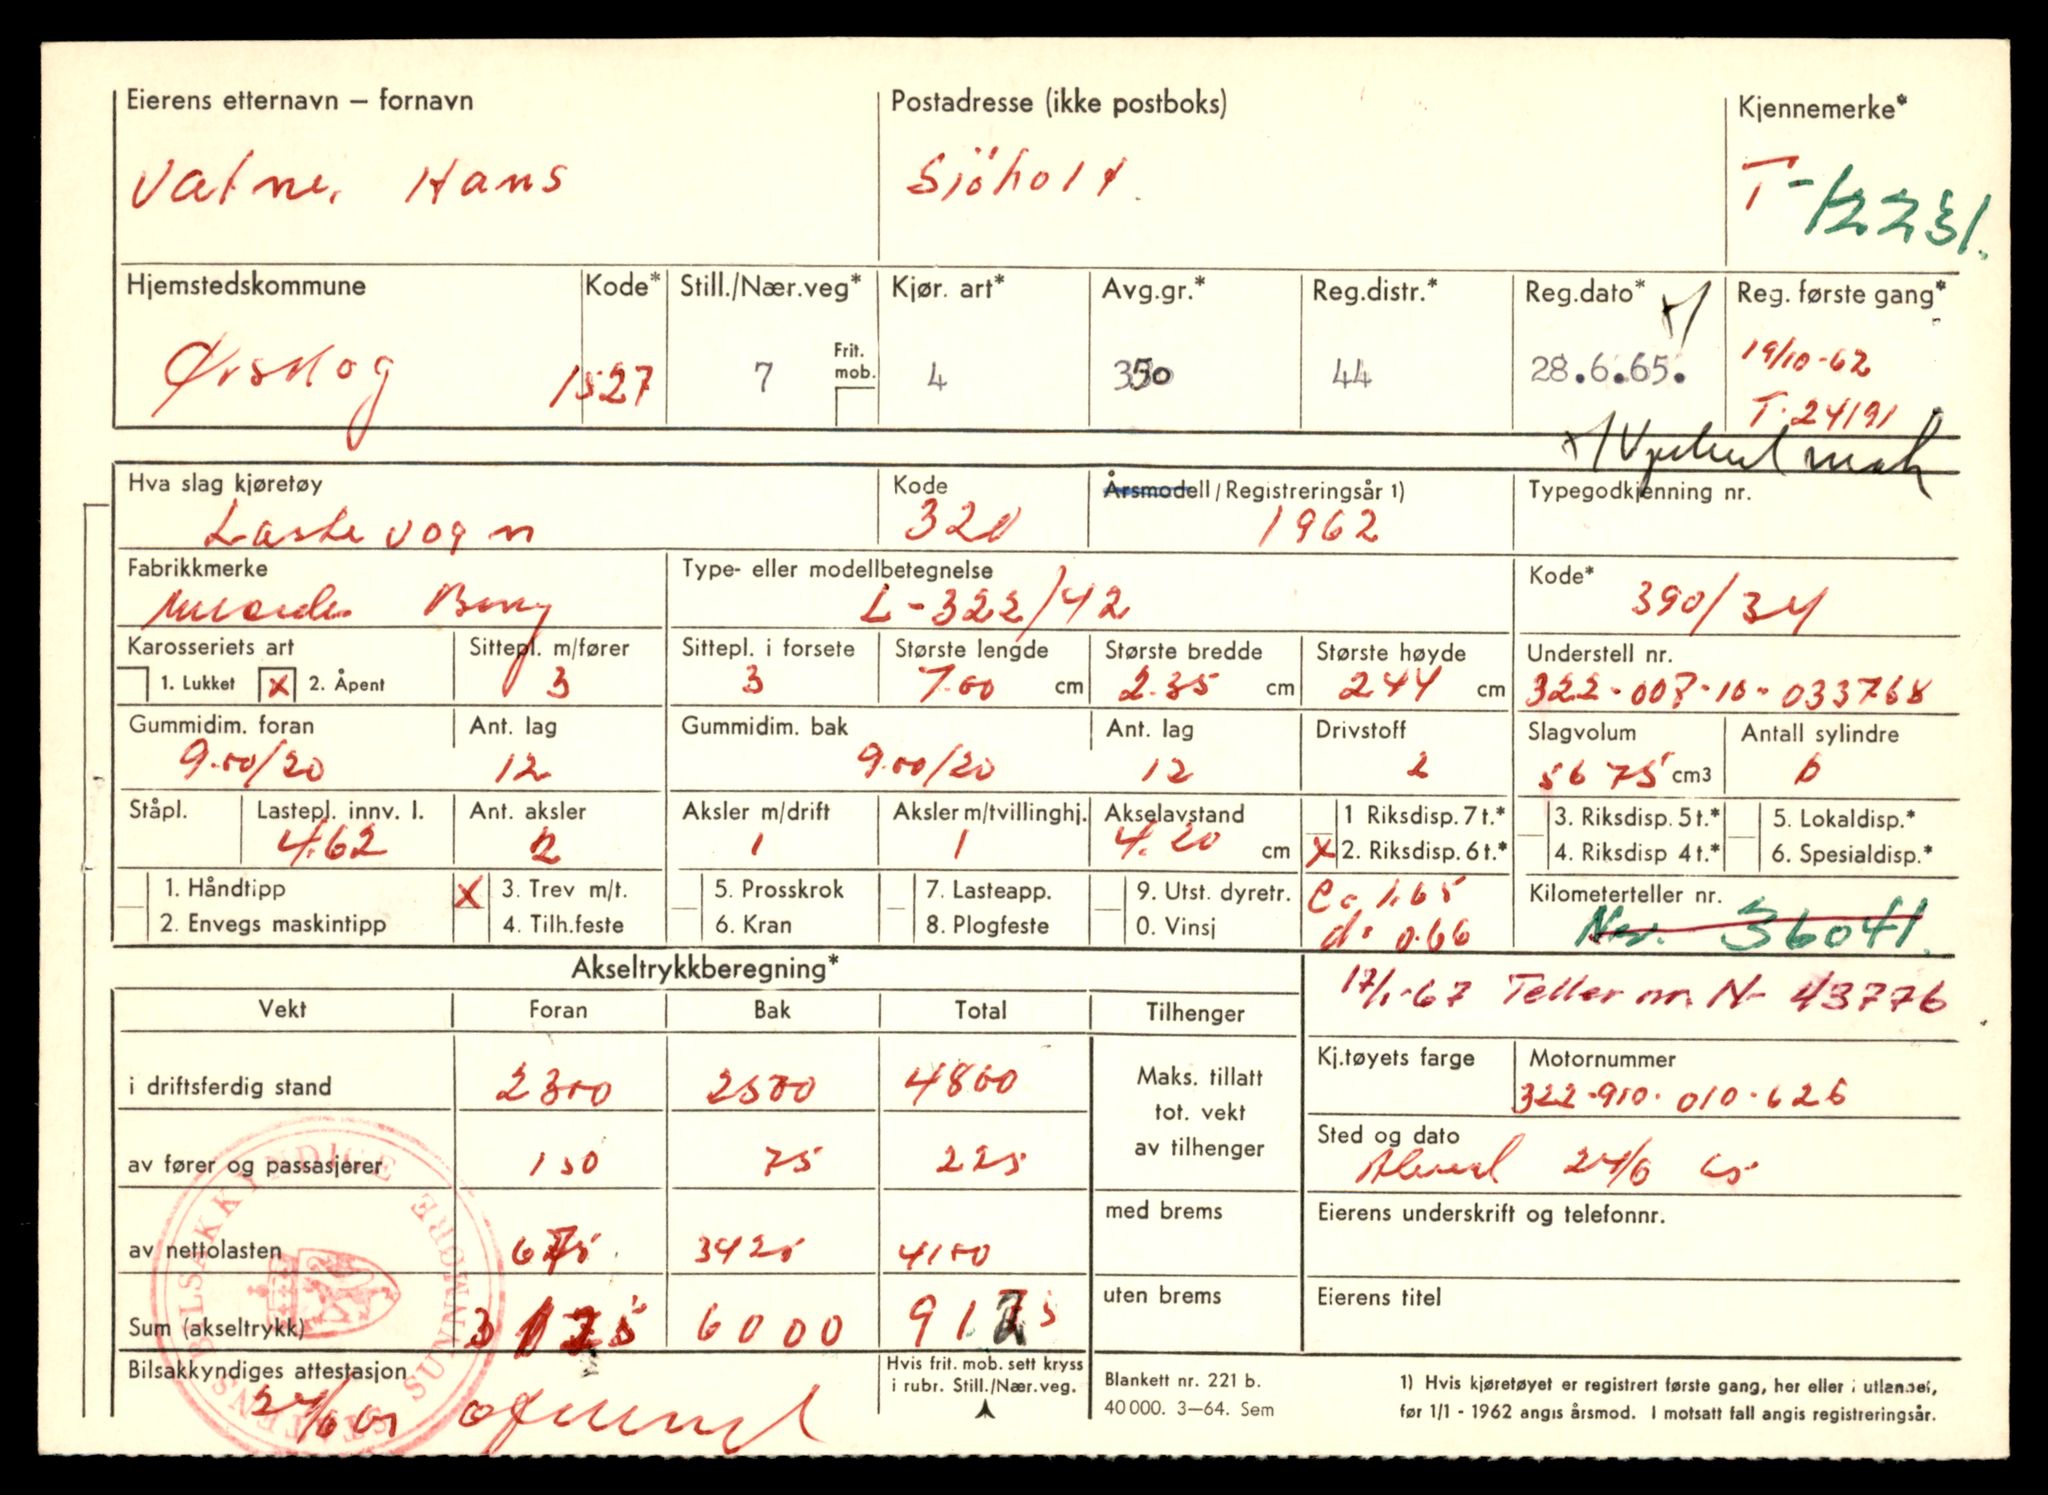 Eierens etternavn – fornavn
Postadresse (ikke postboks)
Kjennemerke*
Vatne, Hans
Sjöholt.
T-12231.
Hjemstedskommune
Kode*
Still./Nær.veg*
Kjør. art*
Avg.gr.*
Reg.distr.*
Reg.dato*
Reg. første gang*
Ørskog
1527
7
Frit. mob.
4
350
44
28.6.65.
19/10-62
T-24191
Hva slag kjøretøy
Kode
Årsmodell/Registreringsår 1)
Typegodkjenning nr.
Lastevogn
320
1962
Fabrikkmerke
Type- eller modellbetegnelse
Kode*
L-322/42
390/34
Karosseriets art
Sittepl. m/fører
Sittepl. i forsete
Største lengde
Største bredde
Største høyde
Understell nr.
1. Lukket
x 2. Åpent
3
3
7.00 cm
2.35 cm
244 cm
322-007-10-033768
Gummidim. foran
Ant. lag
Gummidim. bak
Ant. lag
Drivstoff
Slagvolum
Antall sylindre
9.00/20
12
9.00/20
12
2
5675 cm3
6
Ståpl.
Lastepl. innv. l.
Ant. aksler
Aksler m/drift
Aksler m/tvillinghj.
Akselavstand
1 Riksdisp. 7 t.*
3. Riksdisp. 5 t.*
5. Lokaldisp.*
4.62
2
1
1
4.20 cm
x 2. Riksdisp. 6 t.*
4. Riksdisp 4 t.*
6. Spesialdisp.*
1. Håndtipp
x 3. Trev m/t.
5. Prosskrok
7. Lasteapp.
9. Utst. dyretr.
c = 1.65
Kilometerteller nr.
2. Envegs maskintipp
4. Tilh.feste
6. Kran
8. Plogfeste
0. Vinsj
d = 0.66
Nr. 36041.
Akseltrykkberegning*
17/1-67 Teller nr. N- 43776
Vekt
Foran
Bak
Total
Tilhenger
i driftsferdig stand
2300
2500
4800
Maks. tillatt
tot. vekt
av tilhenger
Kj.tøyets farge
Motornummer
322-910-010-626
av fører og passasjerer
150
75
225
Sted og dato
24/6 65
av nettolasten
675
3425
4100
med brems
Eierens underskrift og telefonnr.
Sum (akseltrykk)
3125
6000
9125
uten brems
Eierens titel
Bilsakkyndiges attestasjon
24/6 65
Hvis frit. mob. sett kryss
i rubr. Still./Nær.veg.
Blankett nr. 221 b.
40 000. 3–64. Sem
1) Hvis kjøretøyet er registrert første gang, her eller i utlandet,
før 1/1 - 1962 angis årsmod. I motsatt fall angis registreringsår.
STATENS BILSAKKYNDIGE SUNNMØRE